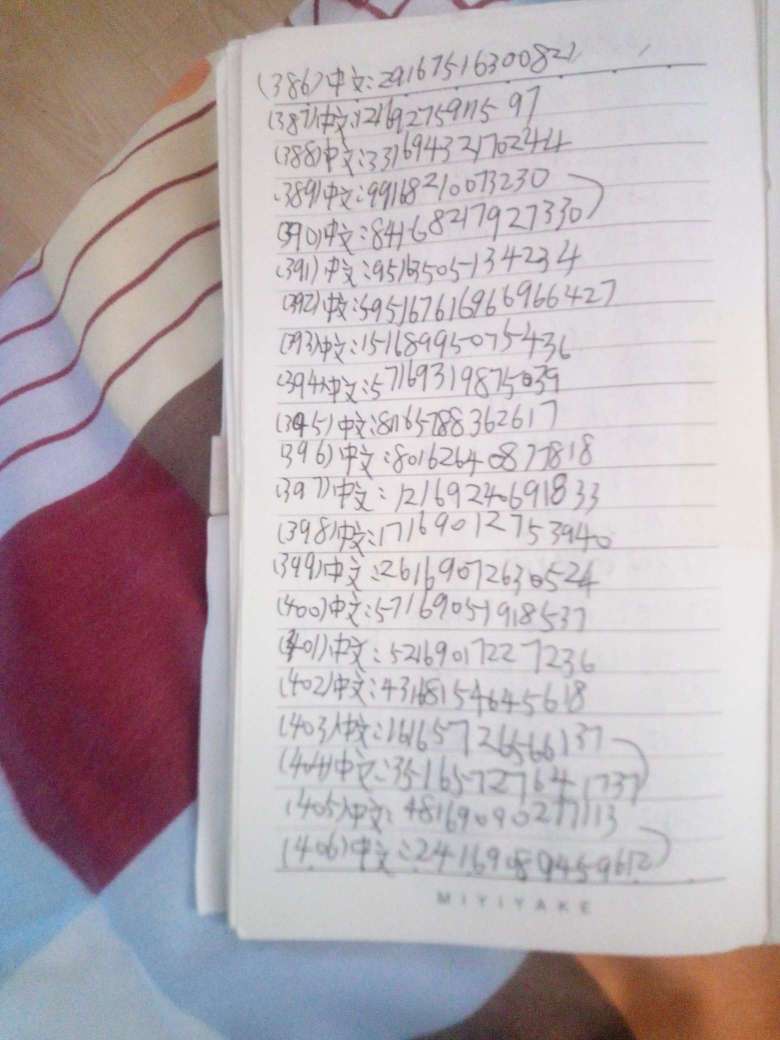 (386)中文:29167516300821
(387)中文:12169275911597
(388)中文:33169432170244
(389)中文:99168210073230
(390)中文:84168217927330
(391)中文:95163505134234
(392)中文:59516761696966427
(393)中文:15168995075436
(394)中文:57169319875039
(395)中文:80165788362617
(396)中文:80162640877818
(397)中文:12169240691833
(398)中文:17169012753940
(399)中文:26169072630524
(400)中文:57169051918537
(401)中文:52169017227236
(402)中文:43168154645618
(403)中文:16165726566137
(404)中文:35165727641737
(405)中文:48169090277113
(406)中文:24169089459612
MIYIYAKE